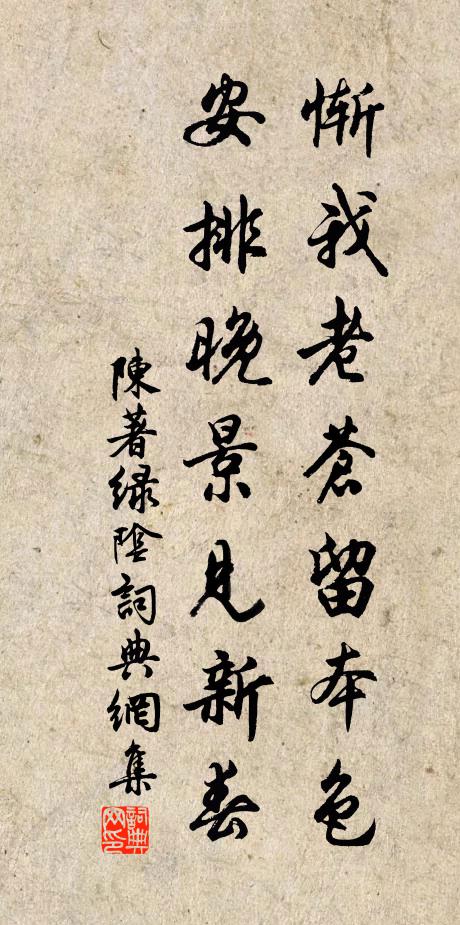 慚我老蒼留本色
安排晚景見新春
陳著綠陰詞典網集
詞典网印